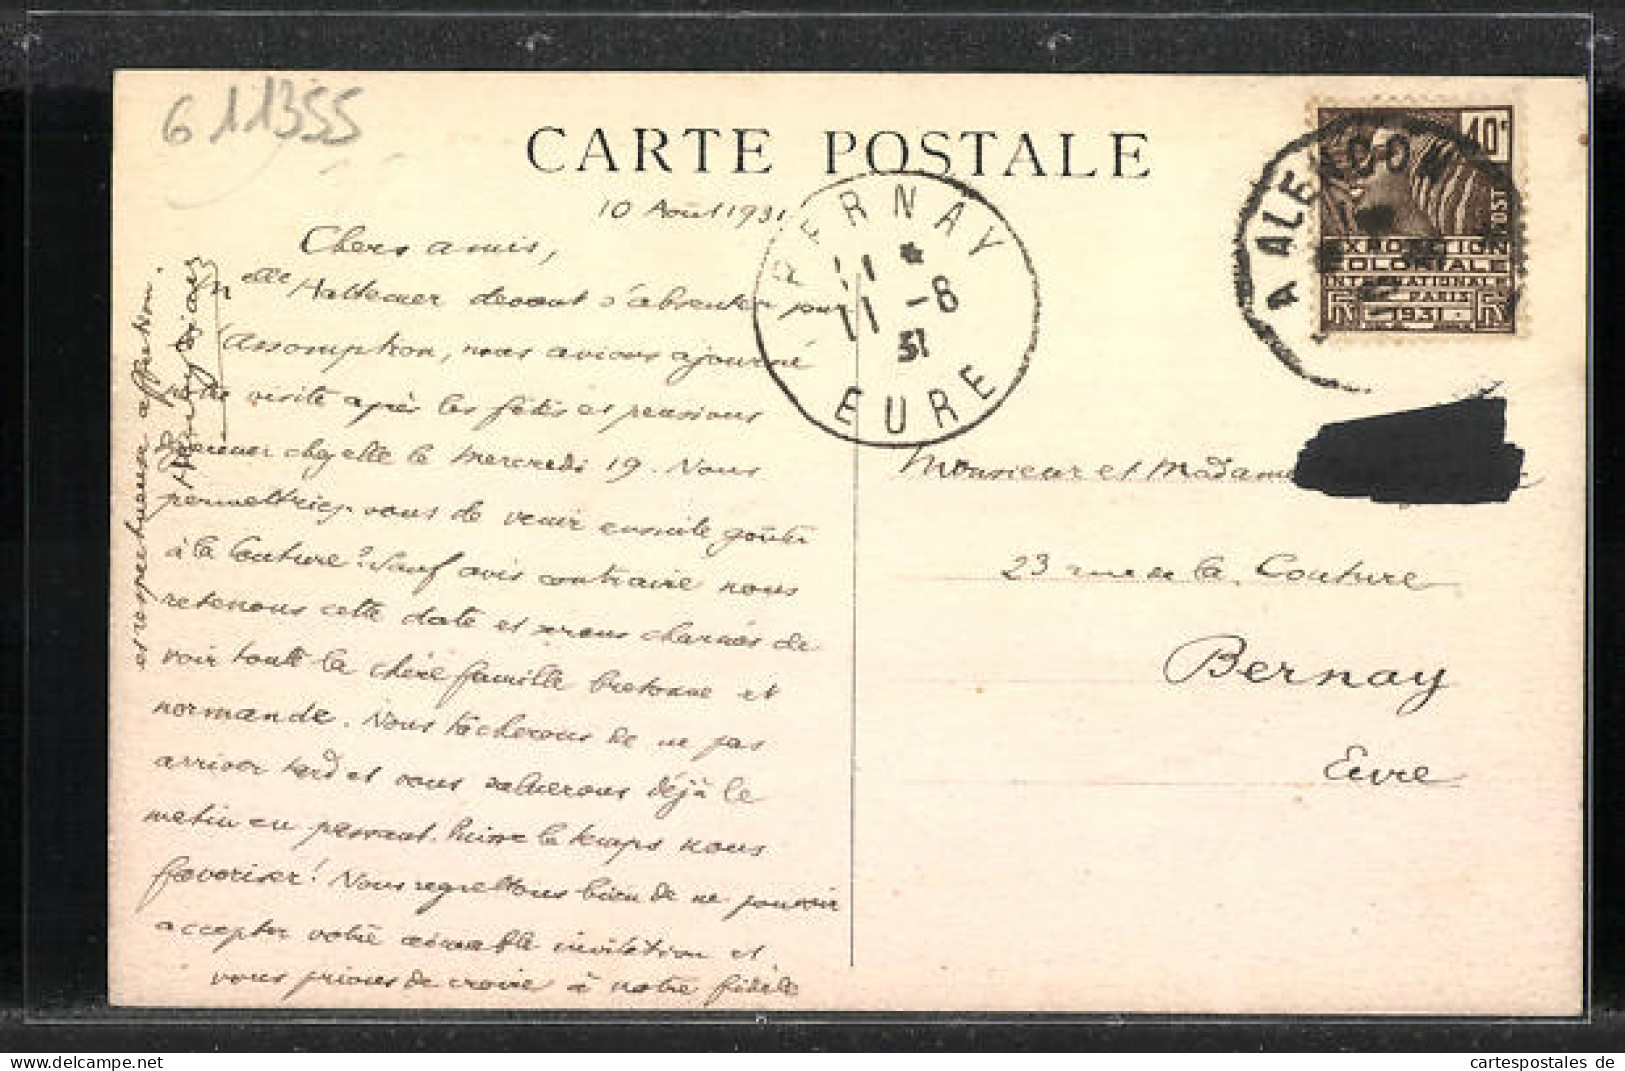 611355
CARTE POSTALE
10 Août 1931.
Chers amis,
Melle devant s'absenter pour
l'Assomption, nous avions ajourné
notre visite après les fêtes et pensions
déjeuner chez elle le mercredi 19. Nous
permettriez-vous de venir ensuite goûter
à la Couture? Sauf avis contraire nous
retenons cette date et serons charmés de
voir toute la chère famille bretonne et
normande. Nous tâcherons de ne pas
arriver tard et vous saluerons déjà le
matin en passant. Puisse le temps nous
favoriser! Nous regrettons bien de ne pouvoir
accepter votre aimable invitation et
vous prions de croire à notre fidèle
et respectueuse affection.
BERNAY
11 *
11 -8
31
EURE
A ALENCON
40c
POST
EXPOSITION
COLONIALE
INTERNATIONALE
PARIS
1931
Monsieur et Madame
23 rue de la Couture
Bernay
Eure
cartespostales de